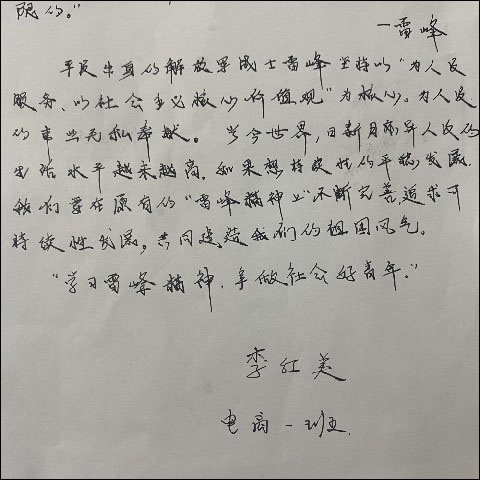 限的。”
—雷峰
平民出身的解放军战士雷峰坚持以“为人民
服务、以社会主义核心价值观”为核心。为人民
的事业无私奉献。当今世界,日新月异人民的
生活水平越来越高.如果想持续性的平稳发展.
我们要在原有的“雷峰精神上”不断完善,追求可
持续性发展,共同建造我们的祖国风气。
“学习雷峰精神,争做社会好青年。”
李红美
电商一班